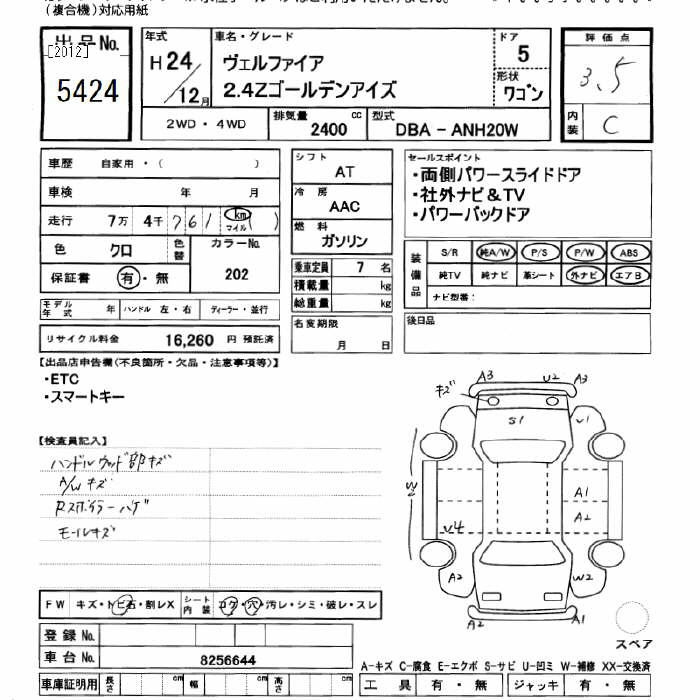 (複合機)対応用紙
出品No.
[2012]
5424
年式
H24/12月
車名・グレード
ヴェルファイア
2.4Zゴールデンアイズ
ドア
5
形状
ワゴン
2WD・4WD
排気量
2400 cc
型式
DBA - ANH20W
評価点
3.5
内装
C
車歴 自家用・( )
車検 年 月
走行 7万 4千 761 (km マイル)
色 クロ 色替 カラーNo. 202
保証書 有・無
モデル年式 年 ハンドル 左・右 ディーラー・並行
リサイクル料金 16,260 円 預託済
シフト
AT
冷房
AAC
燃料
ガソリン
乗車定員 7 名
積載量 kg
総重量 kg
名変期限
月 日
セールスポイント
・両側パワースライドドア
・社外ナビ&TV
・パワーバックドア
装備品
S/R 純A/W P/S P/W ABS
純TV 純ナビ 革シート 外ナビ エアB
ナビ型番:
後日品
【出品店申告欄(不良箇所・欠品・注意事項等)】
・ETC
・スマートキー
【検査員記入】
ハンドルウッド部キズ
A/Wキズ
Rスポイラーハゲ
モールキズ
A3 U2 A3
キズ
S1
U1
W2
A1
A2
U4
A2
W2
A2
A1
スペア
FW キズ・トビ石・割レX シート内装 コゲ・穴・汚レ・シミ・破レ・スレ
登録No.
車台No. 8256644
車庫証明用 長さ cm 幅 cm 高さ cm
A-キズ C-腐食 E-エクボ S-サビ U-凹ミ W-補修 XX-交換済
工具 有・無 ジャッキ 有・無